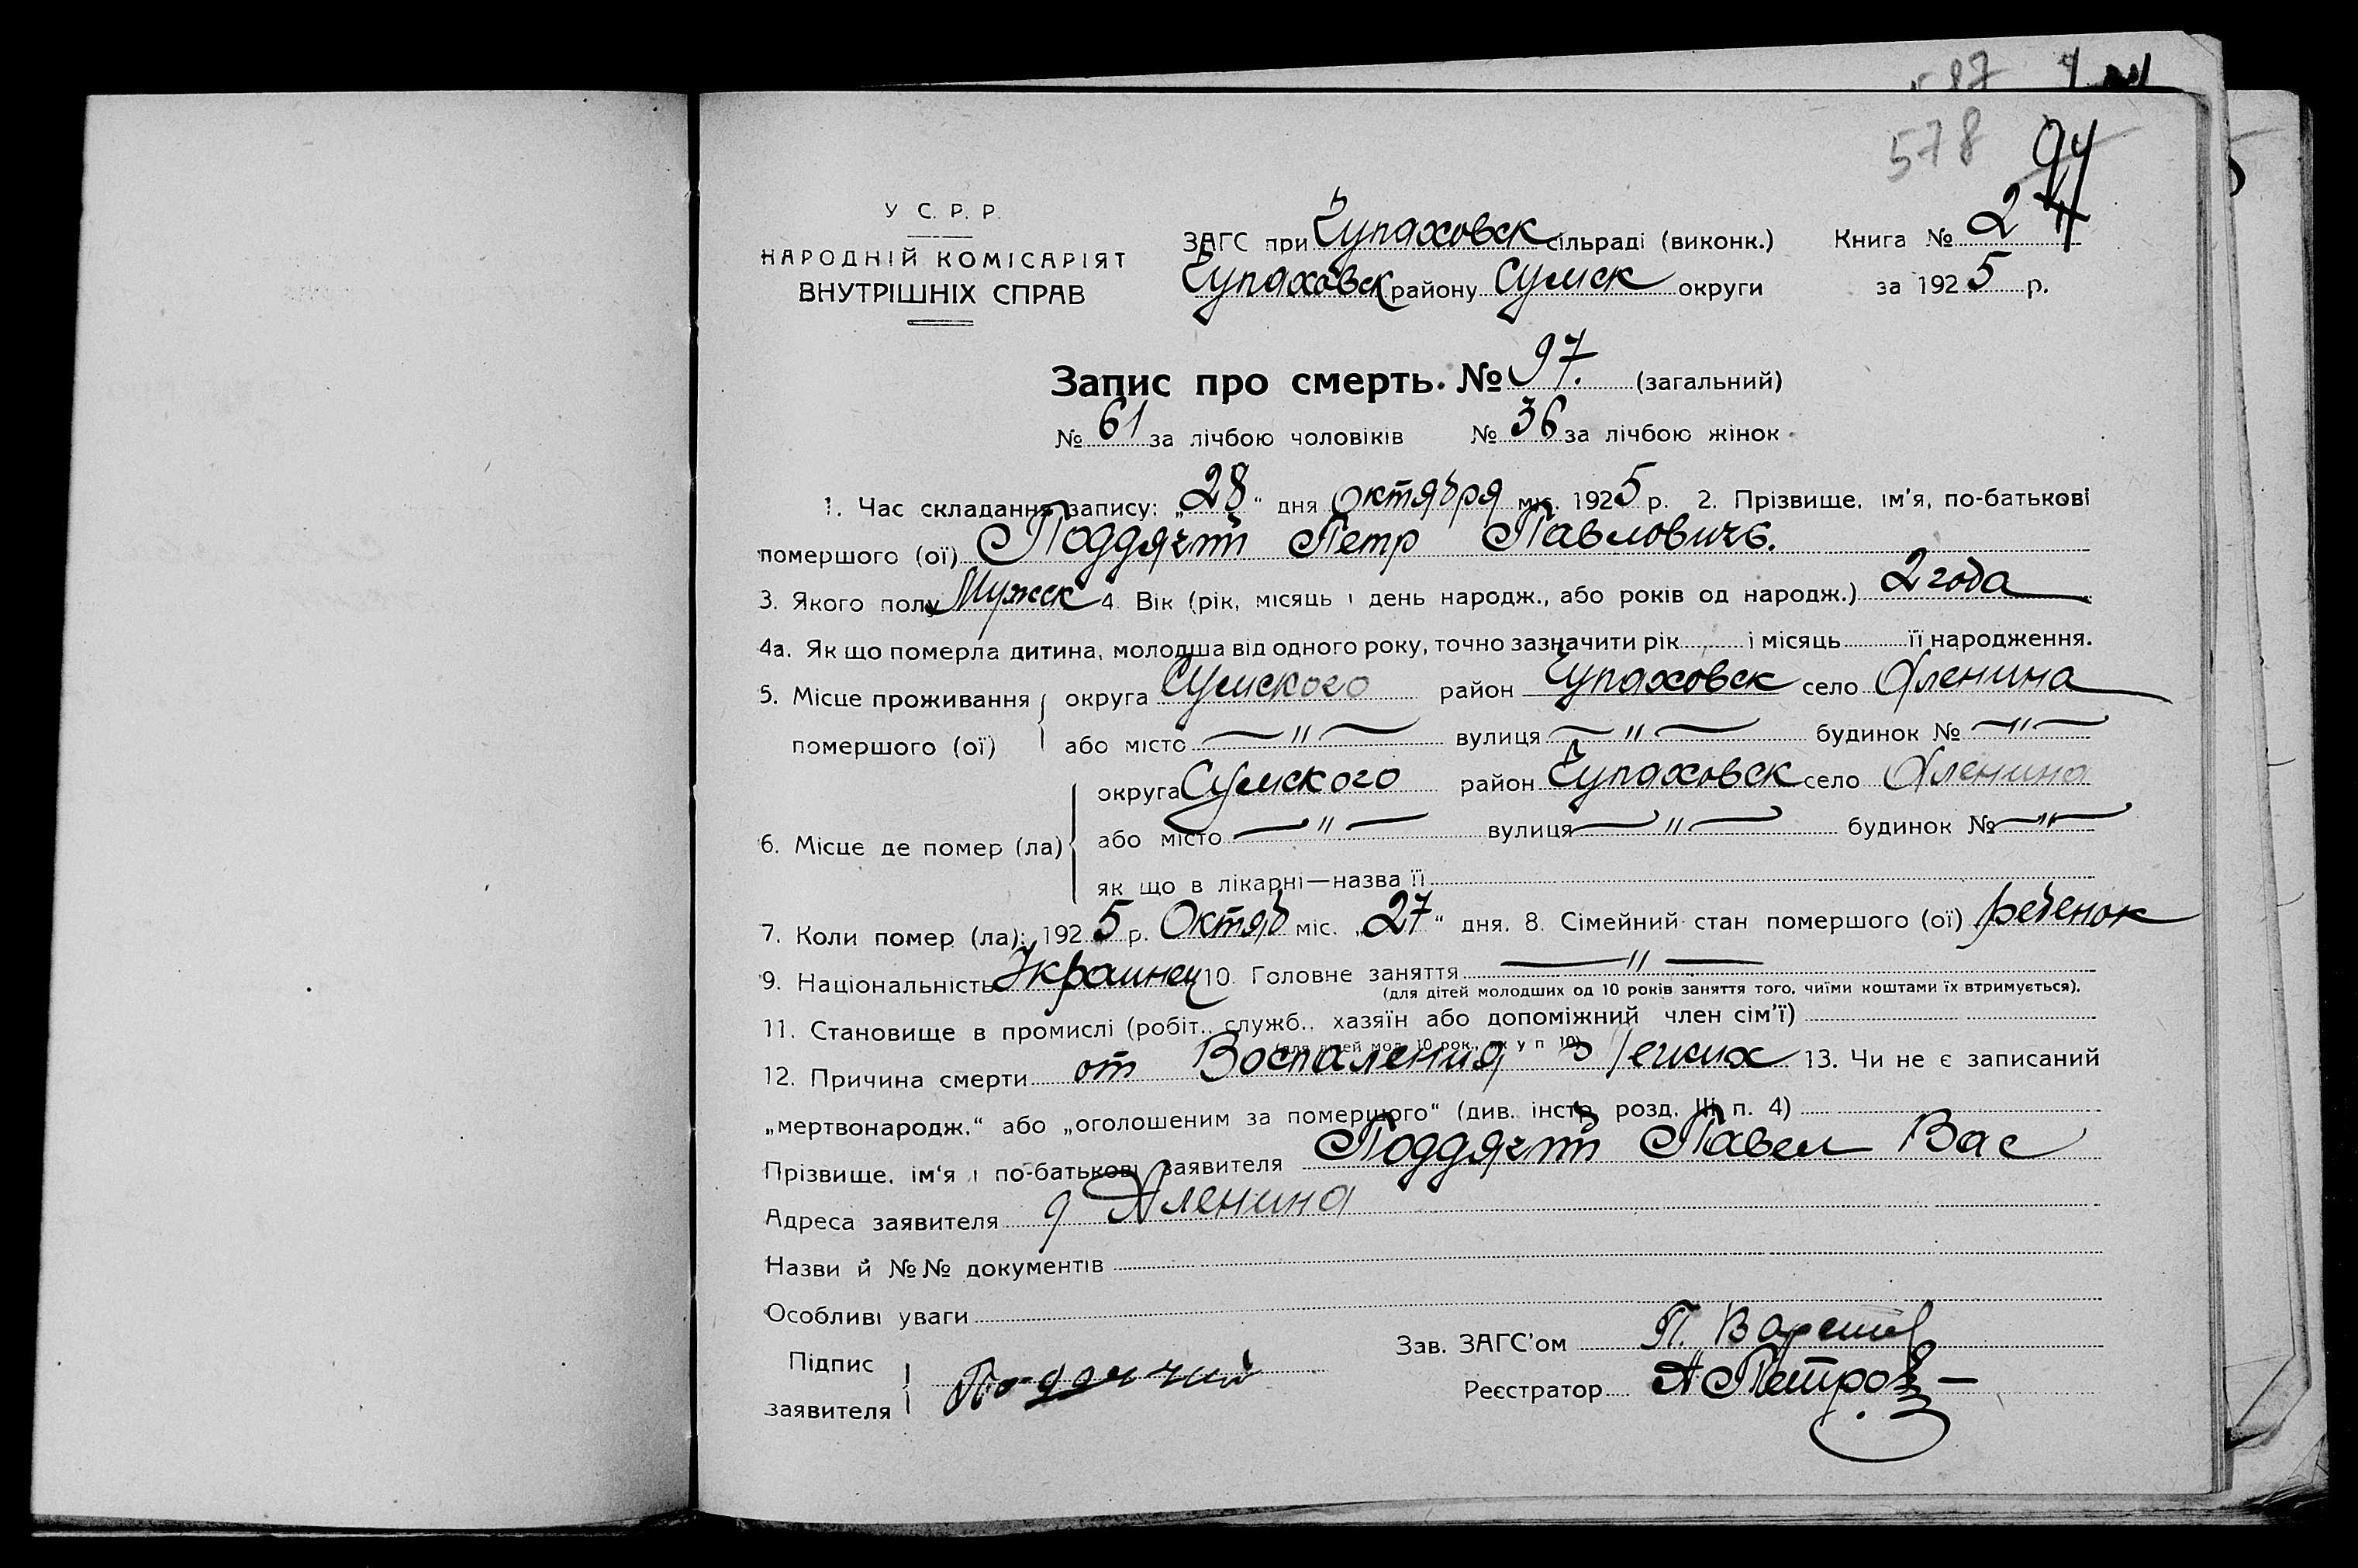 587
578 94
У С. Р. Р.
НАРОДНІЙ КОМІСАРІЯТ
ВНУТРІШНІХ СПРАВ
ЗАГС при Чупаховск сільраді (виконк.) Книга № 2
Чупаховск району Сумск округи за 1925 р.
Запис про смерть. № 97. (загальний)
№ 61 за лічбою чоловіків № 36 за лічбою жінок
1. Час складання запису: „28“ дня октября міс. 1925 р. 2. Прізвище, ім'я, по-батькові
помершого (ої) Поддячий Петр Павловичь.
3. Якого полу Мужск 4. Вік (рік, місяць і день народж., або років од народж.) 2 года
4а. Як що померла дитина, молодша від одного року, точно зазначити рік і місяць її народження.
5. Місце проживання округа Сумского район Чупаховск село Оленина
помершого (ої) або місто —„— вулиця —„— будинок № —„—
округа Сумского район Чупаховск село Оленина
6. Місце де помер (ла) або місто —„— вулиця —„— будинок № —„—
як що в лікарні—назва її
7. Коли помер (ла): 1925 р. Октяб міс. „27“ дня. 8. Сімейний стан помершого (ої) ребенок
9. Національність Украинец 10. Головне заняття —„—
(для дітей молодших од 10 років заняття того, чиїми коштами їх втримується).
11. Становище в промислі (робіт., служб., хазяїн або допоміжний член сім'ї)
(для дітей мол. 10 рок., як у п 10)
12. Причина смерти от Воспаления Легких 13. Чи не є записаний
„мертвонародж.“ або „оголошеним за помершого“ (див. інстр. розд. III п. 4)
Прізвище, ім'я і по-батькові заявителя Поддячий Павел Вас
Адреса заявителя д Аленина
Назви й №№ документів
Особливі уваги
Підпис
заявителя Поддячий
Зав. ЗАГС'ом П.
Реєстратор А Петров